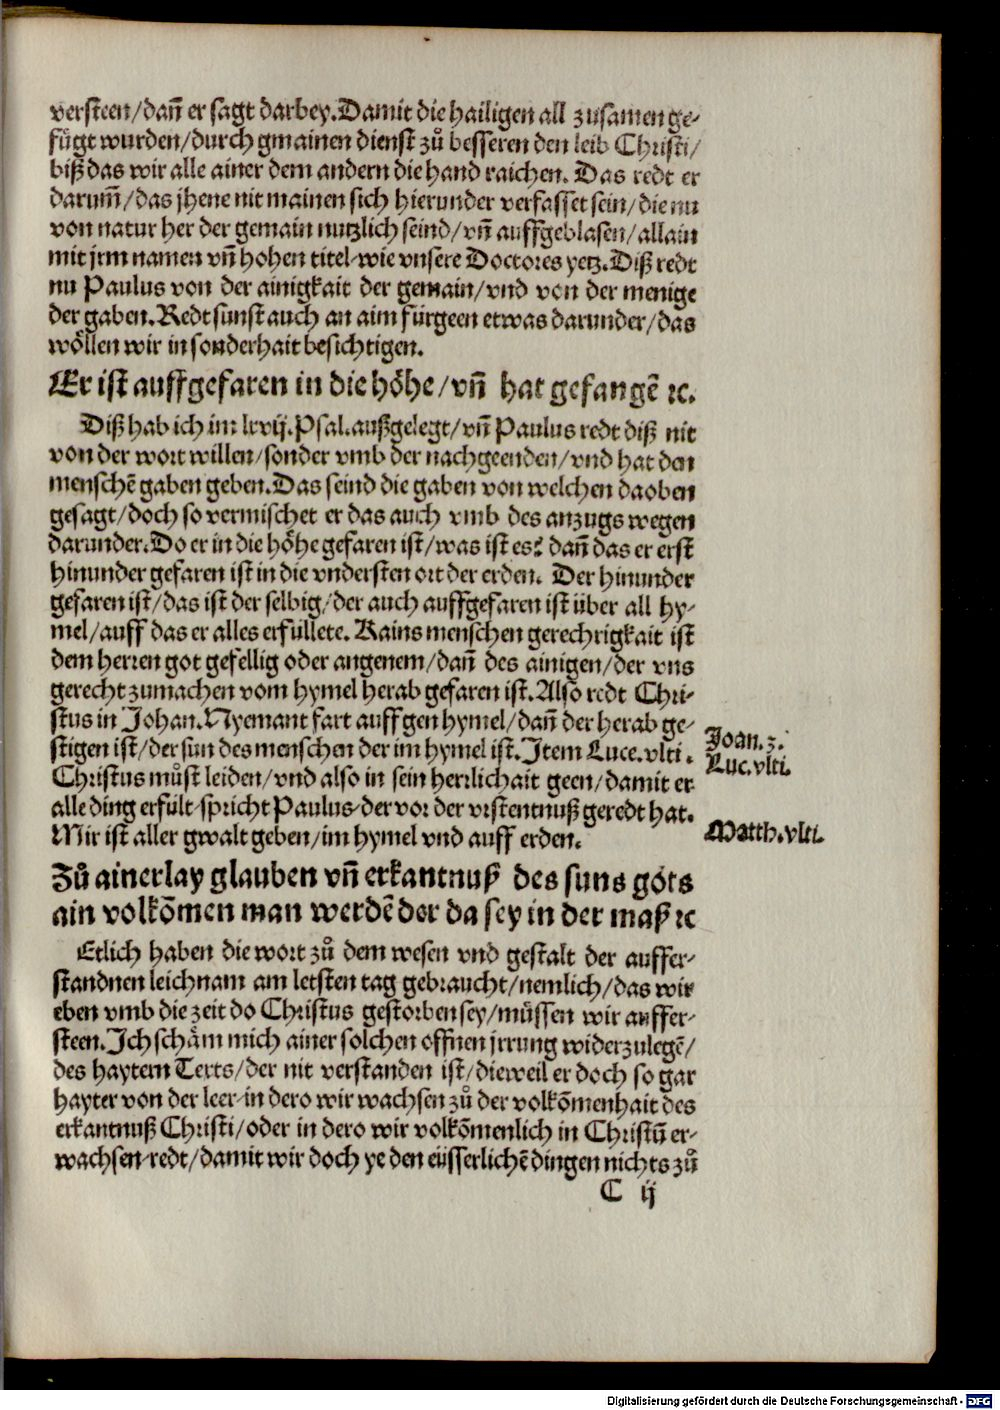 versteen/dañ er sagt darbey. Damit die hailigen all zusamen ge-
fůgt wurden/durch gmainen dienst zů besseren den leib Christi/
biß das wir alle ainer dem andern die hand raichen. Das redt er
darum̃/das jhene nit mainen sich hierunder verfasset sein/die nu
von natur her der gemain nutzlich seind/vñ auffgeblasen/allain
mit jrm namen vñ hohen titel-wie vnsere Doctores yetz. Diß redt
nu Paulus von der ainigkait der gemain/vnd von der menige
der gaben. Redt sunst auch an aim fürgeen etwas darunder/das
wöllen wir in sonderhait besichtigen.
Er ist auffgefaren in die höhe/vñ hat gefangẽ ⁊c.
Diß hab ich im lxvij. Psal. außgelegt/vñ Paulus redt diß nit
von der wort willen/sonder vmb der nachgeenden/vnd hat den
menschẽ gaben geben. Das seind die gaben von welchen daoben
gesagt/doch so vermischet er das auch vmb des anzugs wegen
darunder. Do er in die höhe gefaren ist/was ist es? dañ das er erst
hinunder gefaren ist in die vndersten ort der erden. Der hinunder
gefaren ist/das ist der selbig/der auch auffgefaren ist über all hy-
mel/auff das er alles erfüllete. Kains menschen gerechrigkait ist
dem herren got gefellig oder angenem/dañ des ainigen/der vns
gerecht zumachen vom hymel herab gefaren ist. Also redt Chri-
stus in Johan. Nyemant fart auff gen hymel/dañ der herab ge-
stigen ist/der sun des menschen der im hymel ist. Item Luce. vlti.
Christus můst leiden/vnd also in sein herrlichait geen/damit er
alle ding erfült-spricht Paulus-der vor der vrstentnuß geredt hat.
Mir ist aller gwalt geben/im hymel vnd auff erden.
Joan. 3.
Luc. vlti.
Matth. vlti.
Zů ainerlay glauben vñ erkantnuß des suns gots
ain volkõmen man werdẽ der da sey in der maß ⁊c
Etlich haben die wort zů dem wesen vnd gestalt der auffer-
standnen leichnam am letsten tag gebraucht/nemlich/das wir
eben vmb die zeit do Christus gestorben sey/müssen wir auffer-
steen. Ich schäm mich ainer solchen offnen jrrung widerzulegẽ/
des haytern Texts/der nit verstanden ist/dieweil er doch so gar
hayter von der leer-in dero wir wachsen zů der volkõmenhait des
erkantnuß Christi/oder in dero wir volkõmenlich in Christũ er-
wachsen-redt/damit wir doch ye den eüsserlichẽ dingen nichts zů
C ij
Digitalisierung gefördert durch die Deutsche Forschungsgemeinschaft - DFG